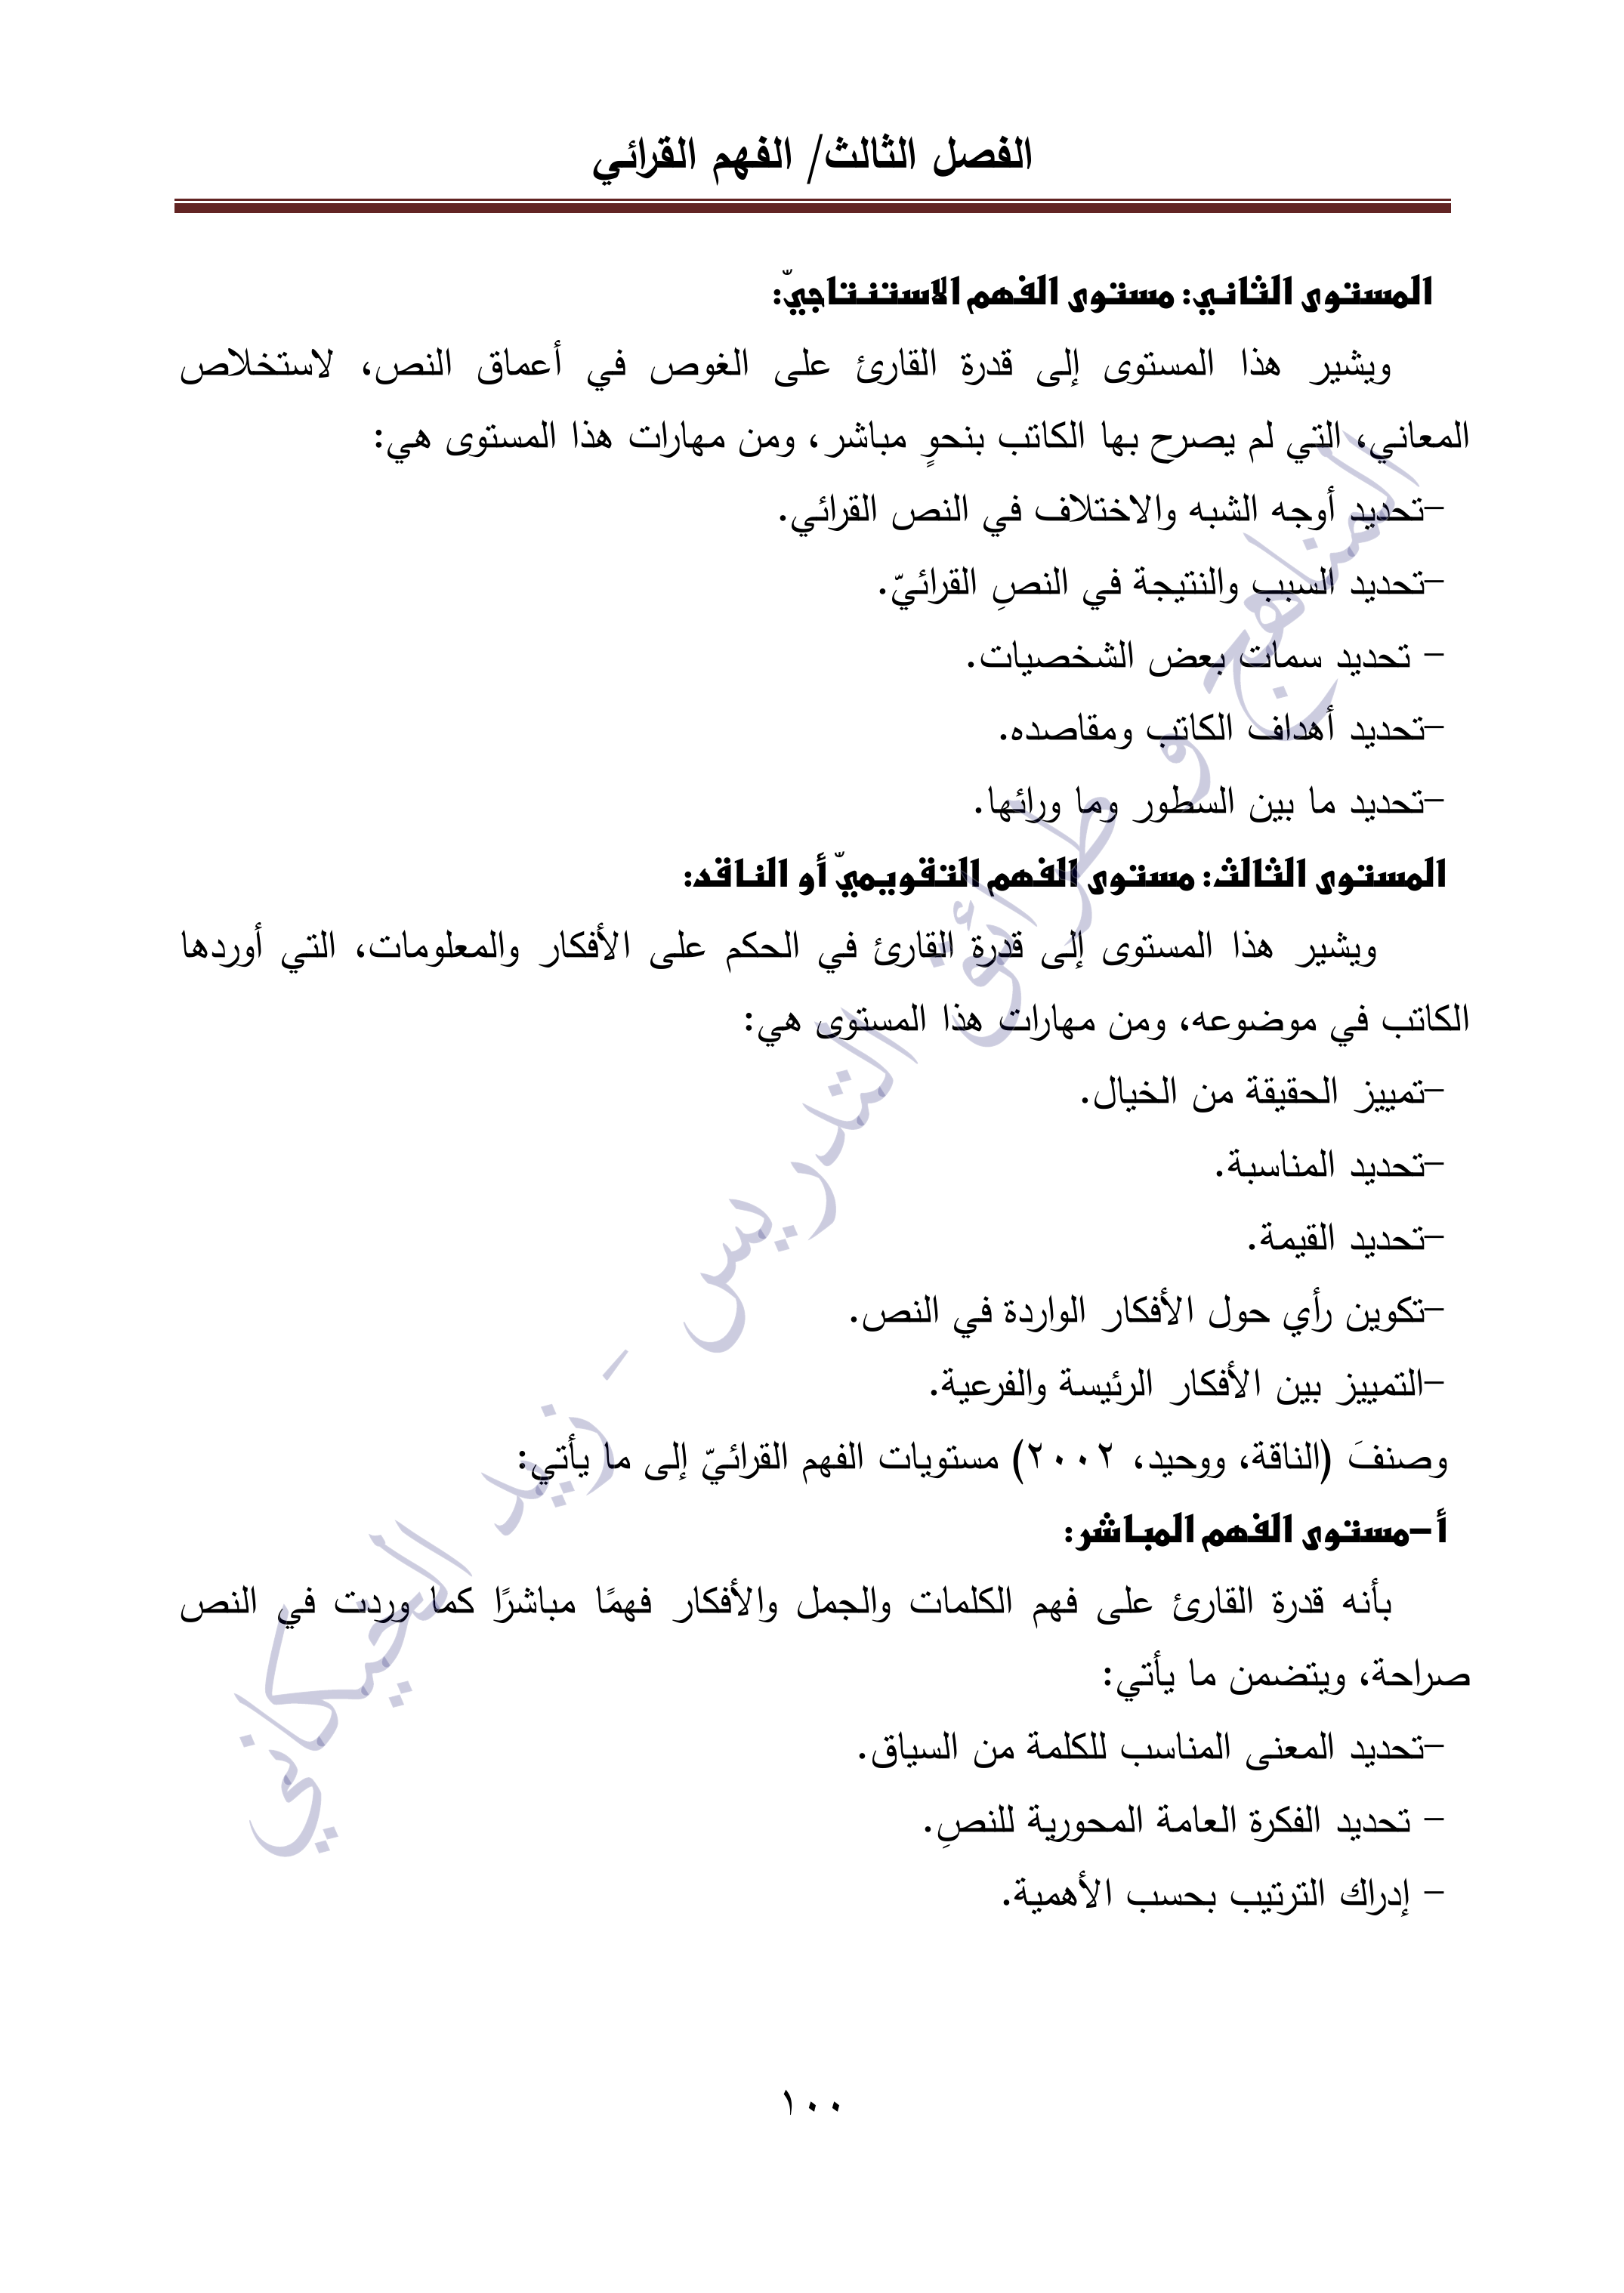 الفصل الثالث/ الفهم القرائي
المستوى الثاني: مستوى الفهم الاستنتاجيّ:
ويشير هذا المستوى إلى قدرة القارئ على الغوص في أعماق النص، لاستخلاص
المعاني، التي لم يصرح بها الكاتب بنحوٍ مباشر، ومن مهارات هذا المستوى هي:
-تحديد أوجه الشبه والاختلاف في النص القرائي.
-تحديد السبب والنتيجة في النصِ القرائيّ.
- تحديد سمات بعض الشخصيات.
-تحديد أهداف الكاتب ومقاصده.
-تحديد ما بين السطور وما ورائها.
المستوى الثالث: مستوى الفهم التقويميّ أو الناقد:
ويشير هذا المستوى إلى قدرة القارئ في الحكم على الأفكار والمعلومات، التي أوردها
الكاتب في موضوعه، ومن مهارات هذا المستوى هي:
-تمييز الحقيقة من الخيال.
-تحديد المناسبة.
-تحديد القيمة.
-تكوين رأي حول الأفكار الواردة في النص.
-التمييز بين الأفكار الرئيسة والفرعية.
وصنفَ (الناقة، ووحيد، ٢٠٠٢) مستويات الفهم القرائيّ إلى ما يأتي:
أ-مستوى الفهم المباشر:
بأنه قدرة القارئ على فهم الكلمات والجمل والأفكار فهمًا مباشرًا كما وردت في النص
صراحة، ويتضمن ما يأتي:
-تحديد المعنى المناسب للكلمة من السياق.
- تحديد الفكرة العامة المحورية للنصِ.
- إدراك الترتيب بحسب الأهمية.
١٠٠
المناهج و طرائق التدريس - زيد الخيكاني